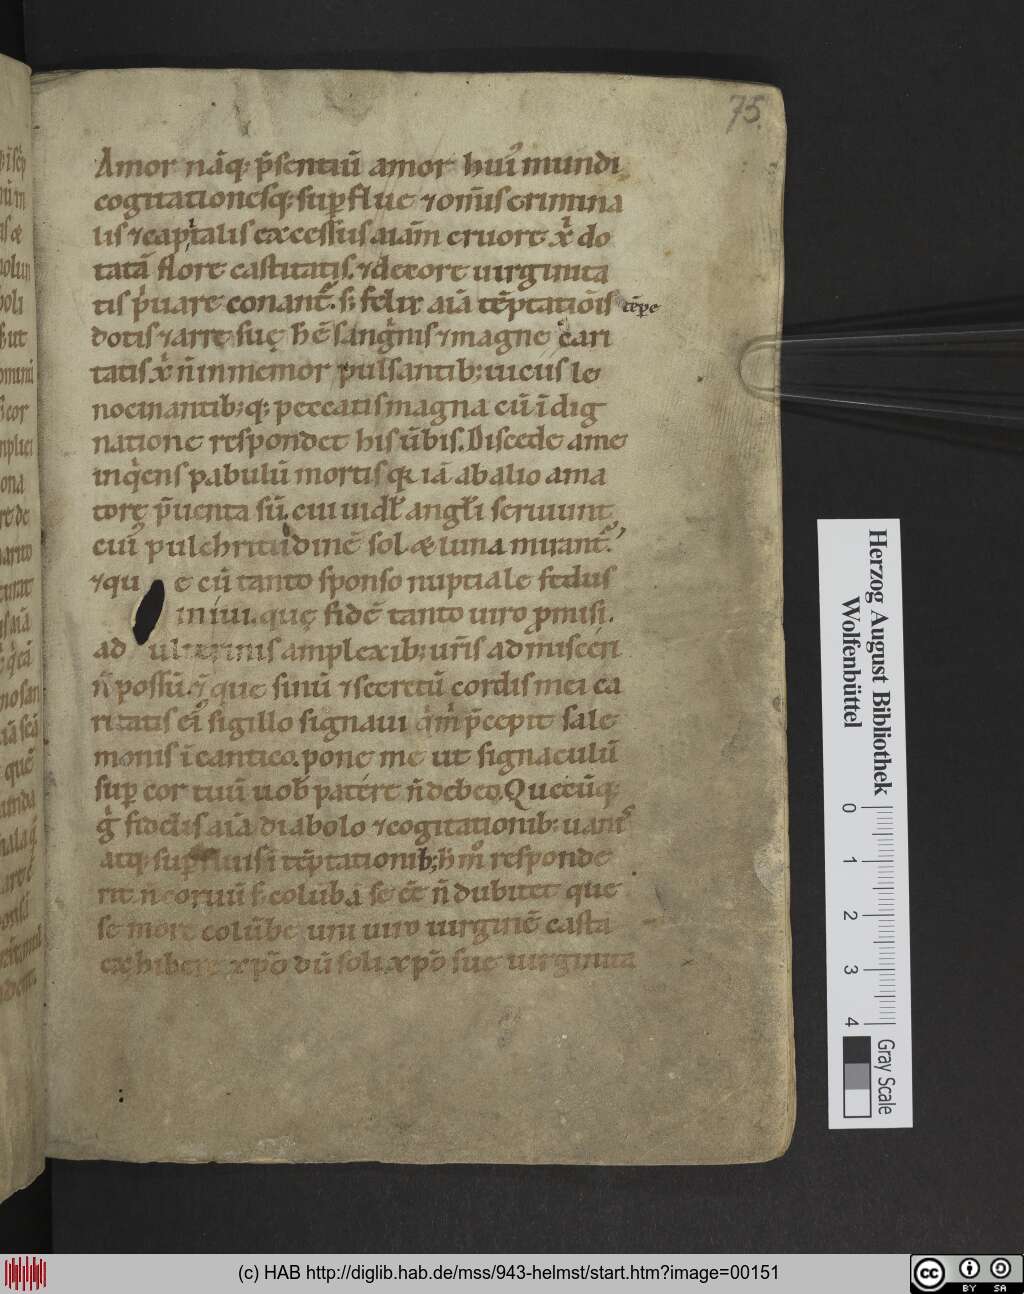 75.
Amor nāq; p̄sentiū amor hui᷒ mundi
cogitationesq; sup̱flue ⁊ om̄is crimina
lis ⁊ capitalis excessus aīam cruore xp̄i do
tatā flore castitatis. ⁊ decore uirginita
tis p̄uare conant᷒. s; felix aīa tēptatiōis tēpe
dotis ⁊ arre suę ⁊ magne cari
tatis xp̄i n̄ inmemor pulsantib; uiciis le
nocinantib; q; peccatis magna cū īdig
natione respondet his ūbis. Discede a me
inq̄ens pabulū mortis q iā ab alio ama
tore p̄uenta sū. cui uidel᷒ angeli seruiunt
cui᷒ pulchritudinē sol & luna mirant᷒.
⁊ qu e cū tanto sponso nuptiale fedus
iníui. quę fidē tanto uiro p̱misi.
ad ulterinis amplexib; ur̄is admisceri
n̄ possū. que sinū ⁊ secretū cordis mei ca
ritatis ei᷒ sigillo signaui p̄cepit sale
monis ī cantico. pone me ut signaculū
sup̱ cor tuū uob̄ patére n̄ debeo. Quecūq;
g̊ fidelis aīa diabolo ⁊ cogitationib; uanis
atq; sup̱fluis tēptationib; responde
rit. n̄ coruū s; colūbā se eē n̄ dubitet que
se more colūbe uni uiro uirginē castā
exhibere xp̄o dū soli xp̄o sue uirginita
Herzog August Bibliothek
Wolfenbüttel
0 1 2 3 4
Gray Scale
(c) HAB http://diglib.hab.de/mss/943-helmst/start.htm?image=00151
cc BY SA